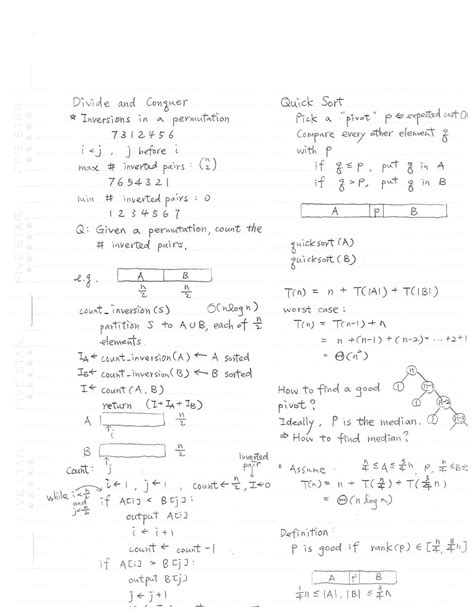 Divide and Conquer
* Inversions in a permutation
7 3 1 2 4 5 6
i < j , j before i
max # inverted pairs : (n 2)
7 6 5 4 3 2 1
min # inverted pairs : 0
1 2 3 4 5 6 7
Q: Given a permutation, count the
# inverted pairs.
e.g. A B
n/2 n/2
count_inversion(S) O(n log n)
partition S to A∪B, each of n/2
elements.
I_A ← count_inversion(A) ← A sorted
I_B ← count_inversion(B) ← B sorted
I ← count(A, B)
return (I + I_A + I_B)
A n/2
i
B n/2
j
count: inverted pair
i ← 1, j ← 1, count ← n/2, I ← 0
while i < n/2 and j < n/2
if A[i] < B[j]:
output A[i]
i ← i + 1
count ← count - 1
if A[i] > B[j]:
output B[j]
j ← j + 1
Quick Sort
Pick a "pivot" p ← expected cost O(
Compare every other element q
with p
if q ≤ p, put q in A
if q > p, put q in B
A p B
quicksort (A)
quicksort (B)
T(n) = n + T(|A|) + T(|B|)
worst case :
T(n) = T(n-1) + n
= n + (n-1) + (n-2) + ... + 2 + 1
= Θ(n²)
n
1 n-1
1 n-2
How to find a good
pivot ?
Ideally, P is the median.
⇒ How to find median?
* Assume :
T(n) = n + T(n/4) + T(3/4 n)
= Θ(n log n)
Definition :
p is good if rank(p) ∈ [n/4, 3n/4]
A p B
1/4 n ≤ |A|, |B| ≤ 3/4 n
FIVE STAR
FIVE STAR
FIVE STAR
FIVE STAR